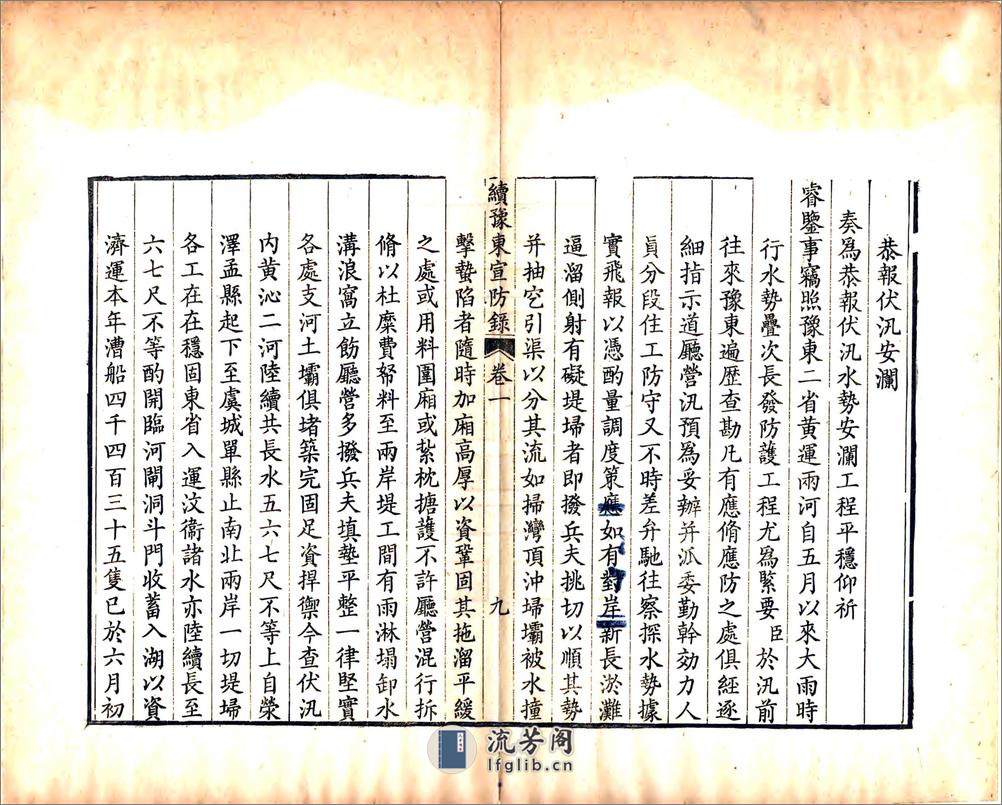 恭報伏汛安瀾
奏爲恭報伏汛水勢安瀾工程平穩仰祈
睿鑒事竊照豫東二省黃運兩河自五月以來大雨時
行水勢疊次長發防護工程尤爲緊要臣於汛前
往來豫東遍歷查勘凡有應脩應防之處俱經逐
細指示道廳營汛預爲妥辦并派委勤幹効力人
員分段住工防守又不時差弁馳往察探水勢據
實飛報以憑酌量調度策應如有對岸新長淤灘
逼溜側射有礙堤埽者即撥兵夫挑切以順其勢
并抽空引渠以分其流如掃灣頂沖埽壩被水撞
續豫東宣防錄 卷一 九
擊蟄陷者隨時加廂高厚以資鞏固其拖溜平緩
之處或用料圍廂或紮枕搪護不許廳營混行拆
脩以杜糜費帑料至兩岸堤工間有雨淋塌卸水
溝浪窩立飭廳營多撥兵夫填墊平整一律堅實
各處支河土壩俱堵築完固足資捍禦今查伏汛
內黃沁二河陸續共長水五六七尺不等上自滎
澤孟縣起下至虞城單縣止南北兩岸一切堤埽
各工在在穩固東省入運汶衞諸水亦陸續長至
六七尺不等酌開臨河閘洞斗門收蓄入湖以資
濟運本年漕船四千四百三十五隻已於六月初
流芳阁
lfglib.cn